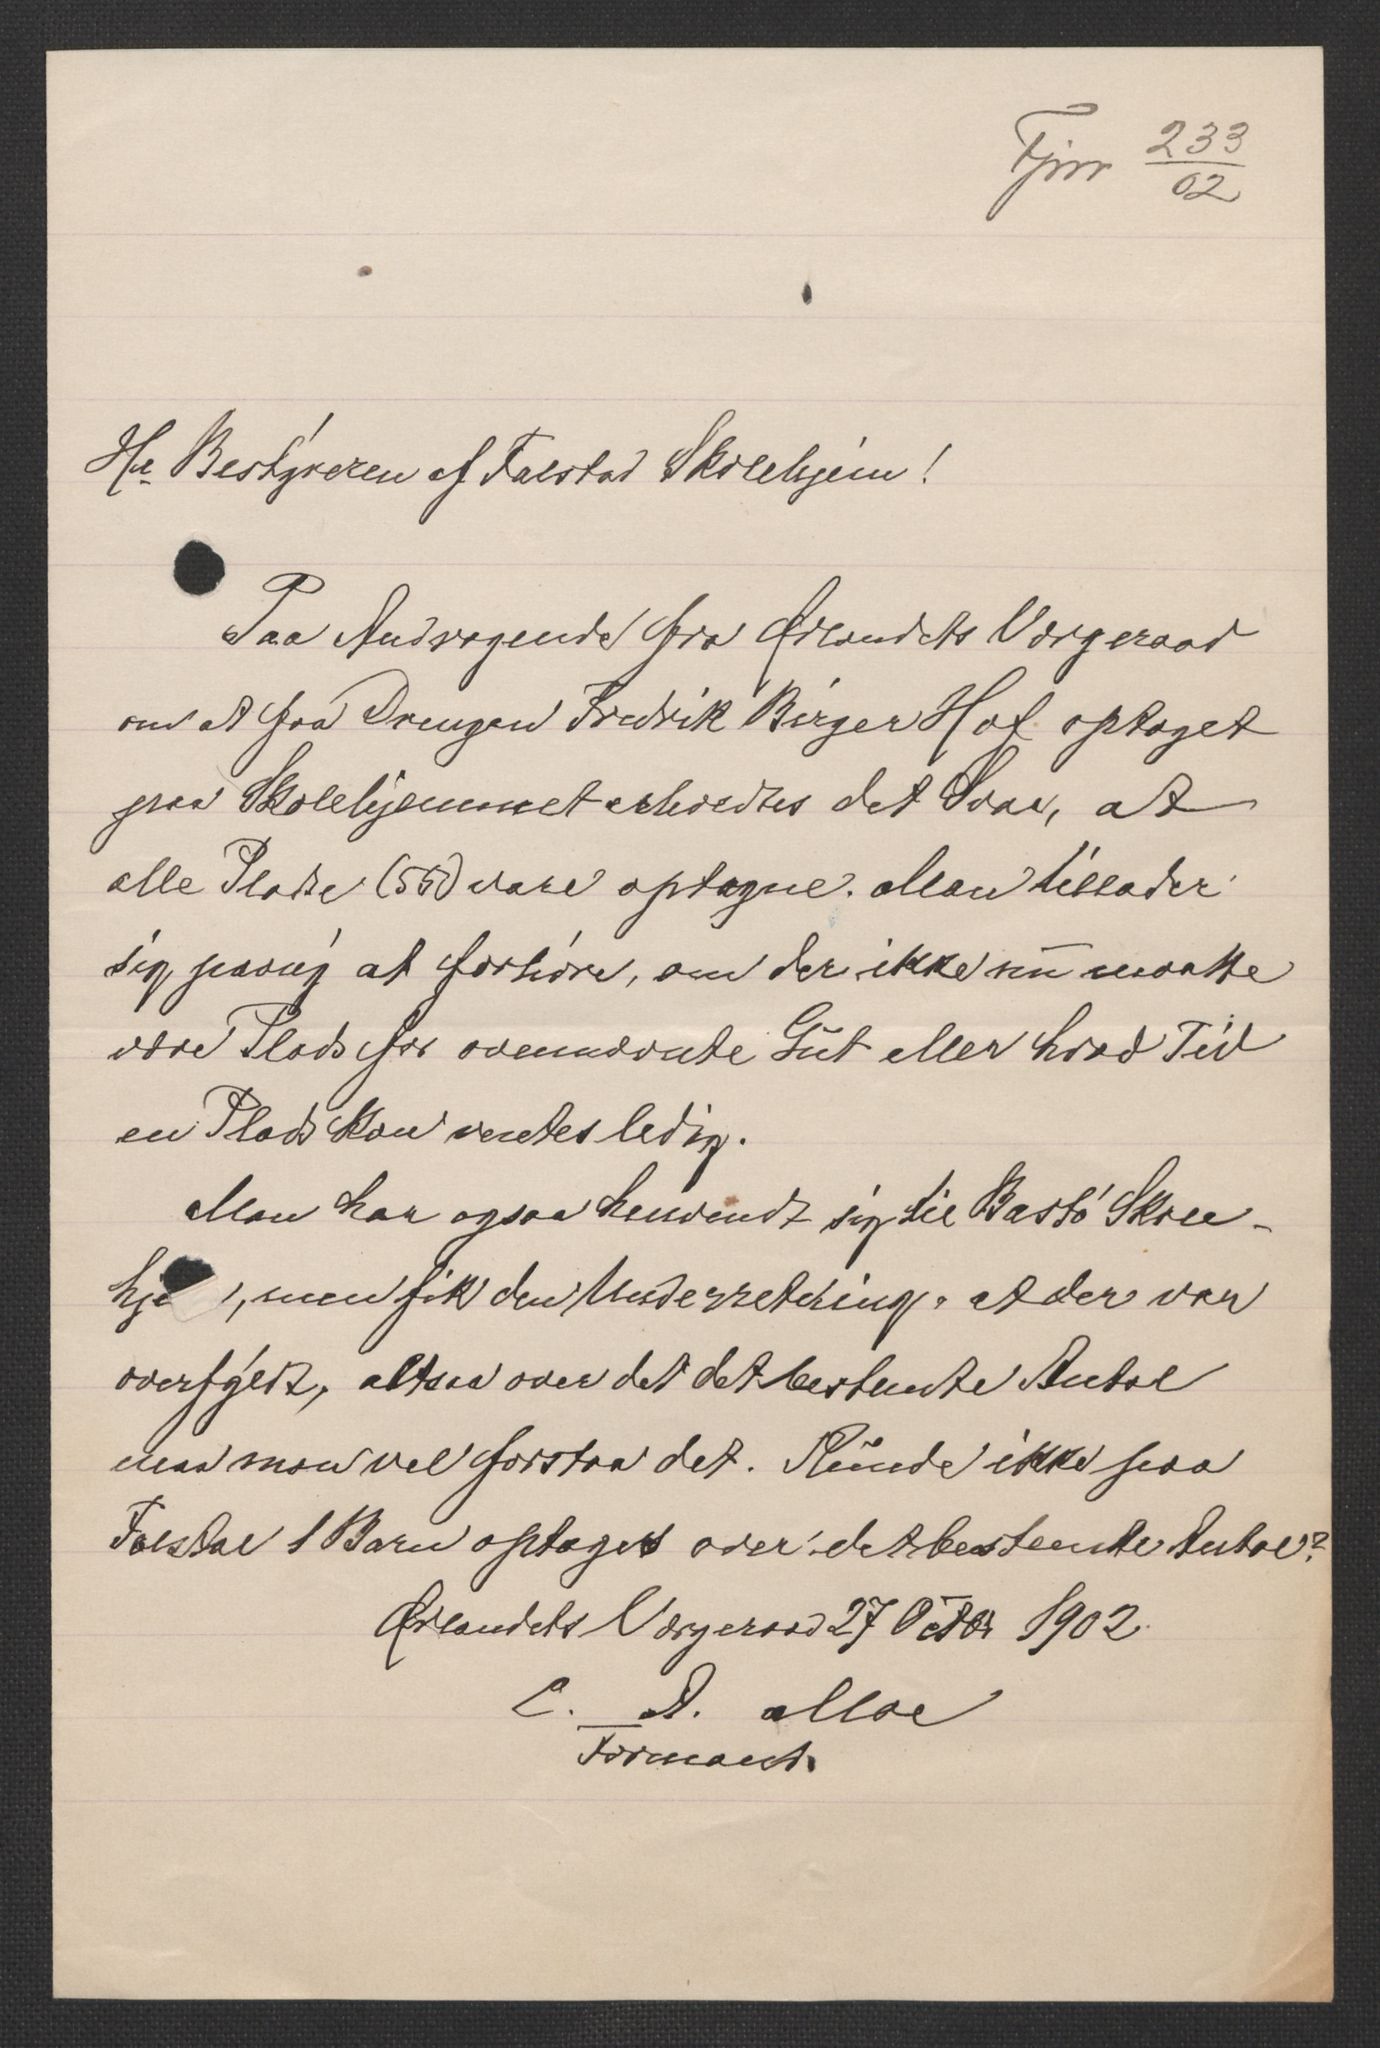 Fjnr 233/02
Hr Bestÿreren af Falstad Skolehjem!
Paa Andragende fra Ørlandets Værgeraad
om at faa Drengen Fredrik Birger Hof optaget
paa Skolehjemmet erholdtes det Svar, at
alle Pladse (55) vare optagne. Man tillader
sig paanÿ at forhöre, om der ikke nu maatte
være Plads for ovennævnte Gut eller hvad Tid
en Plads kan ventes ledig.
Man har ogsaa henvendt sig til Bastö Skole-
hje , men fik den Underretning, at der var
overfÿldt, altsaa over det det bestemte Antal
maa man vel forstaa det. Kunde ikke paa
Falstad 1 Barn optages over det bestemte Antal?
Ørlandets Værgeraad 27 Octbr 1902.
C. A. Moe
Formand.